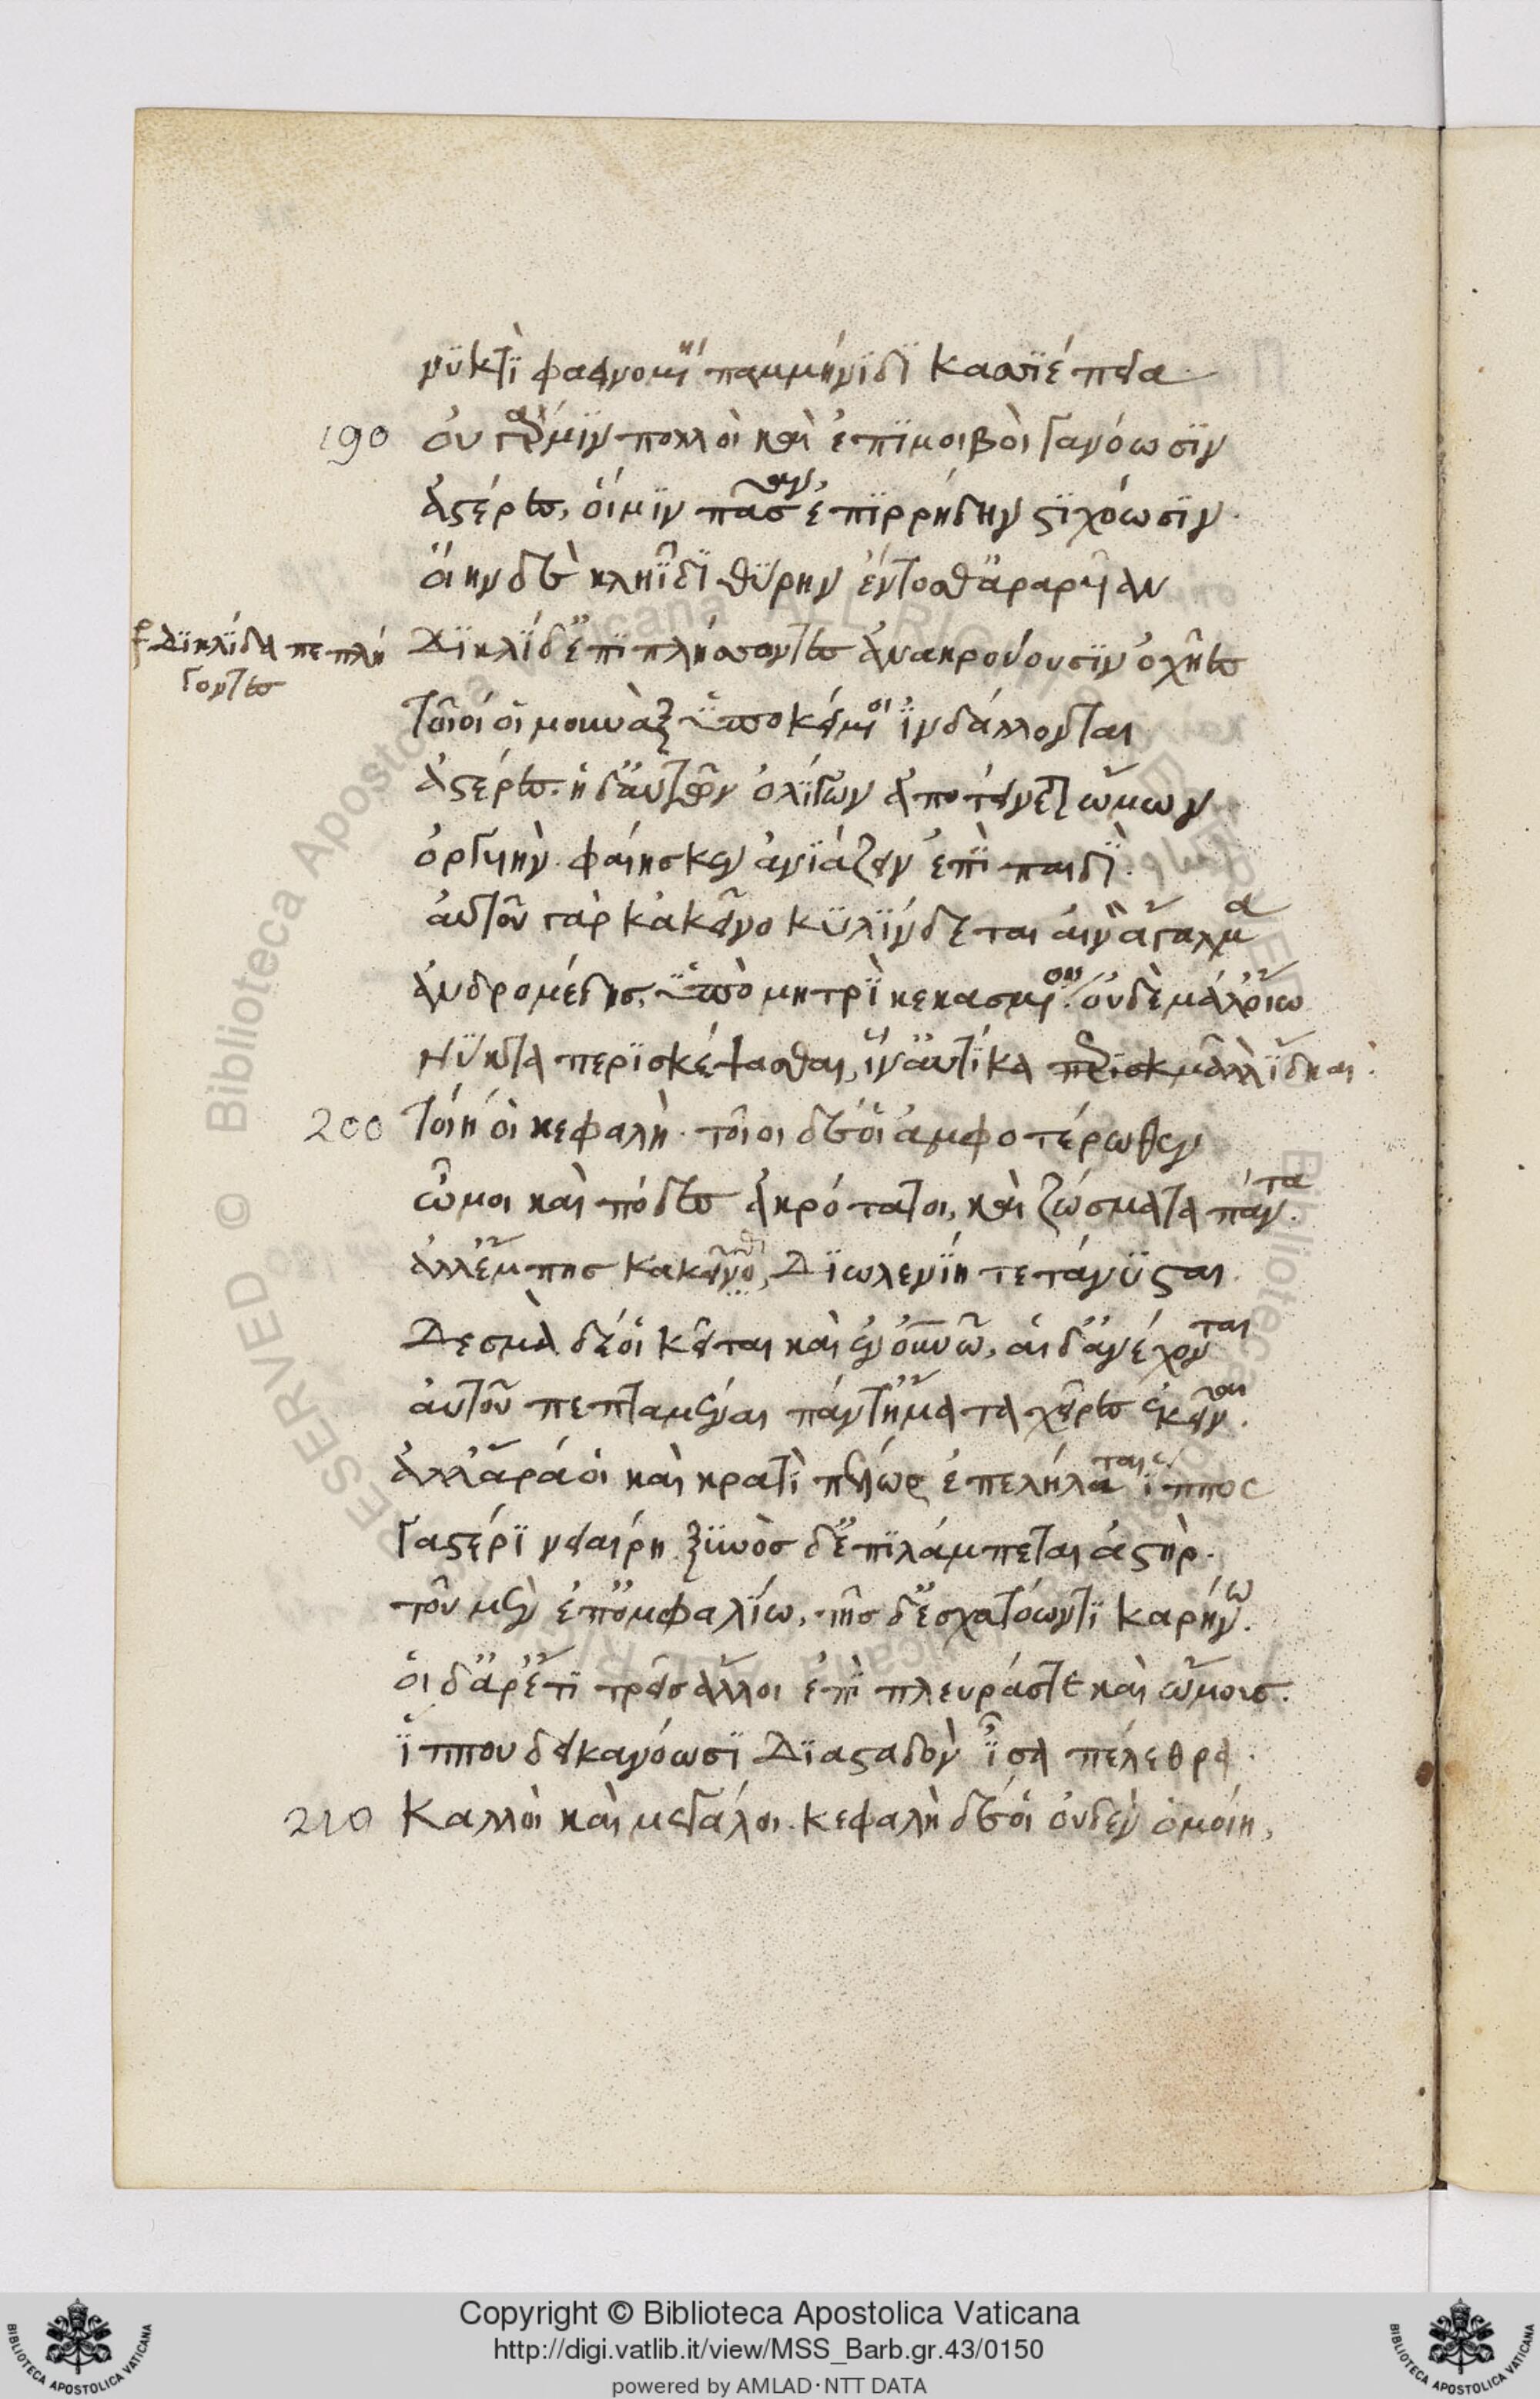 νυκτὶ φαεινομένη παμμήνιδι κασσιέπεια.
190 οὐ γάρ μιν πολλοὶ καὶ ἐπημοιβοὶ γανόωσιν
ἀστέρες, οἵ μιν πᾶσαν ἐπιρρήδην στιχόωσιν.
οἵην δὲ κληῗδι θύρην ἔντοσθ' ἀραρυῖαν
δικλίδ' ἐπιπλήσσοντες ἀνακρούουσιν ὀχῆες
δικλίδα πεπλή
γοντες
τοῖοί οἱ μουνὰξ ὑποκείμενοι ἰνδάλλονται
ἀστέρες. ἡ δ' αὔτως ὀλίγων ἀποτείνεται ὤμων
ὀργυιήν. φαίης κεν ἀνιάζειν ἐπὶ παιδί.
αὐτοῦ γὰρ κἀκεῖνο κυλίνδεται αἰνὸν ἄγαλμα
ἀνδρομέδης, ὑπὸ μητρὶ κεκασμένον. οὐδὲ μάλ' οἴω
νύκτα περισκέψασθαι, ἵν' αὐτίκα μᾶλλον ἴδηαι.
200 τοίη οἱ κεφαλή. τοῖοι δέ οἱ ἀμφοτέρωθεν
ὦμοι καὶ πόδες ἀκρότατοι, καὶ ζώσματα πάντα.
ἀλλ' ἔμπης κἀκεῖθι, διωλενίη τετάνυσται.
δεσμὰ δέ οἱ κεῖται καὶ ἐν οὐρανῷ, αἱ δ' ἀνέχονται
αὐτοῦ πεπταμέναι πάντ' ἤματα χεῖρες ἐκεῖναι.
ἀλλ' ἄρα οἱ καὶ κρατὶ πέλωρ ἐπελήλαται ἵππος
γαστέρι νειαίρῃ. ξυνὸς δ' ἐπιλάμπεται ἀστήρ.
τοῦ μὲν ἐπ' ὀμφαλίῳ, τῆς δ' ἐσχατόωντι καρήνῳ.
οἱ δ' ἄρ' ἔτι τρεῖς ἄλλοι ἐπὶ πλευράς τε καὶ ὤμοις.
ἵππου δεικανόωσι διασταδὸν ἶσα πέλεθρα.
210 καλοὶ καὶ μεγάλοι. κεφαλὴ δέ οἱ οὐδὲν ὁμοίη,
Copyright © Biblioteca Apostolica Vaticana
http://digi.vatlib.it/view/MSS_Barb.gr.43/0150
powered by AMLAD·NTT DATA